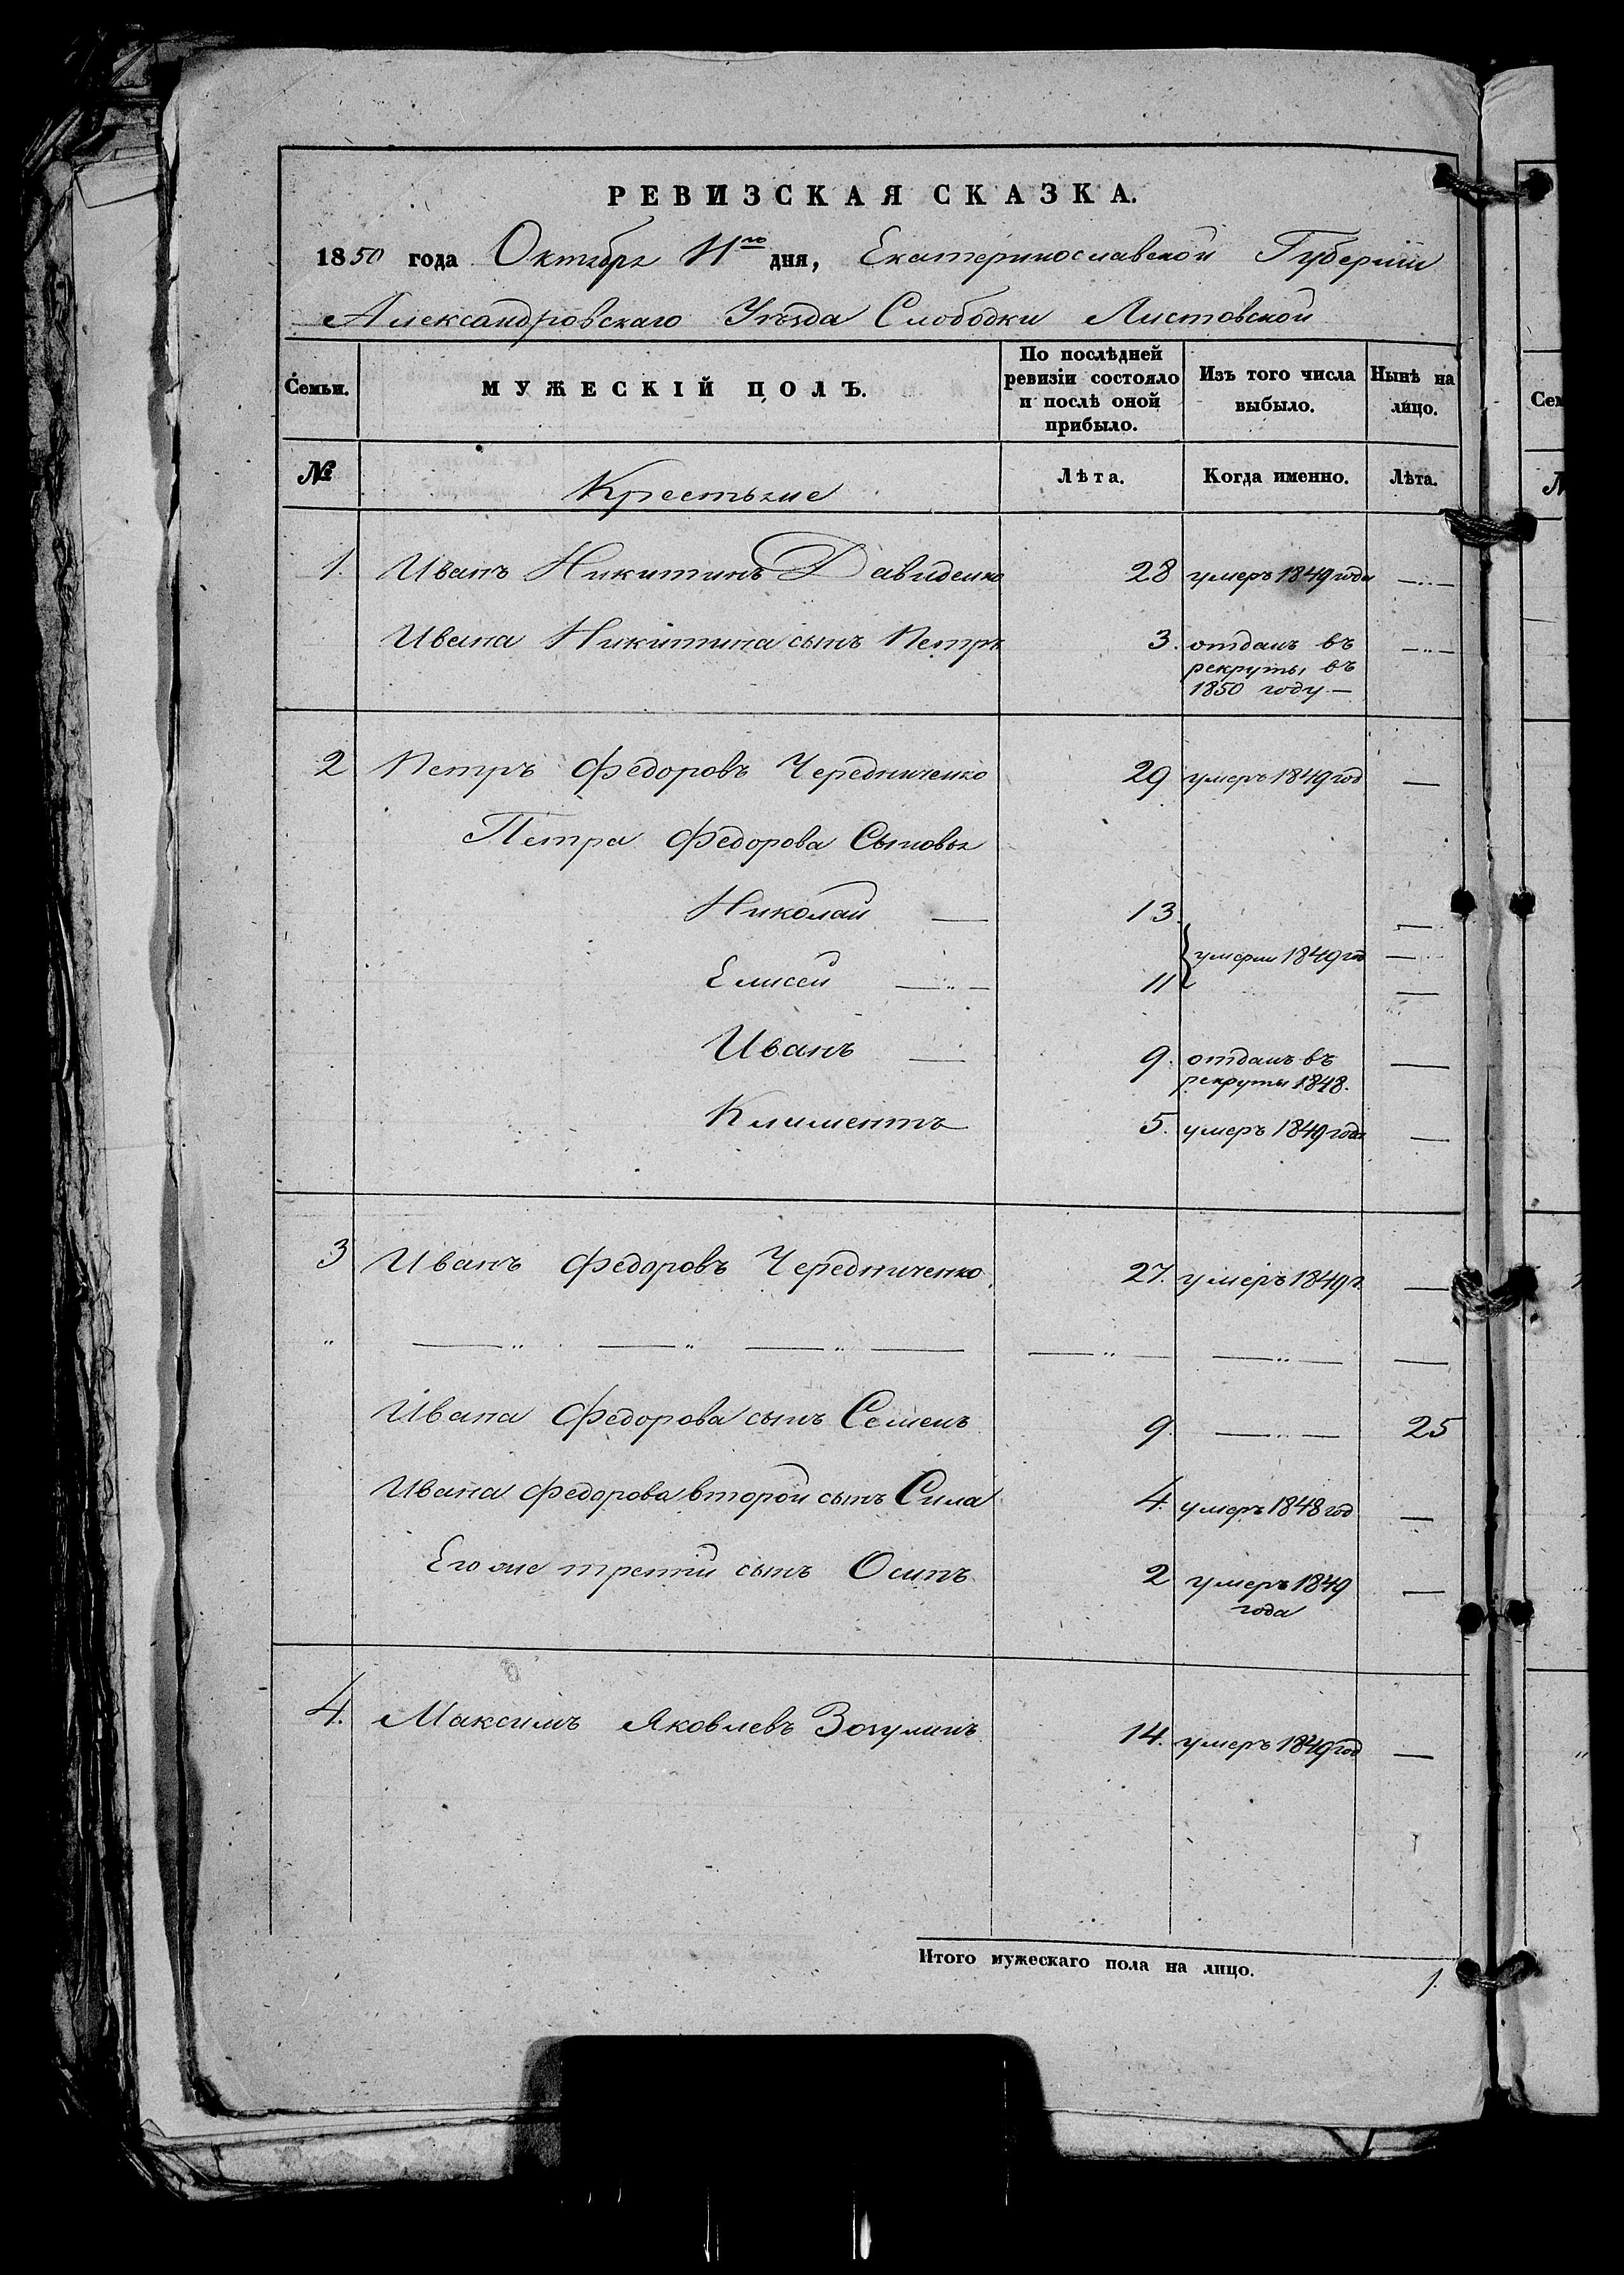 РЕВИЗСКАЯ СКАЗКА.
1850 года Октября 11го дня, Екатеринославской Губернiи
Александровскаго Уѣзда Слободки Листовской
Семьи. МУЖЕСКІЙ ПОЛЪ. По послѣдней ревизіи состояло и послѣ оной прибыло. Изъ того числа выбыло. Нынѣ на лицо.
№ Крестьяне Лѣта. Когда именно. Лѣта.
1. Иванъ Никитинъ Давиденко 28 умеръ 1849 года —..—
Ивана Никитина сынъ Петръ 3. отданъ въ —..—
рекруты въ
1850 году —
2 Петръ Федоровъ Чередниченко 29 умеръ 1849 год —
Петра Федорова Сыновья
Николай — 13 —
умерли 1849 год —
Елисей —..— 11 —
Иванъ — 9. отданъ въ —
рекруты 1848.
Климентъ 5. умеръ 1849 года —
3 Иванъ Федоровъ Чередниченко 27. умеръ 1849 г. —
„ —„ —„ —„— —„— —„— —
Ивана Федорова сынъ Семенъ 9. —..— 25
Ивана Федорова второй сынъ Сила 4. умеръ 1848 год —
Его же третiй сынъ Осипъ 2 умеръ 1849 —
года
4. Максимъ Яковлевъ Зозулинъ 14. умеръ 1849 год —
Итого мужескаго пола на лицо. 1.
Сем
№